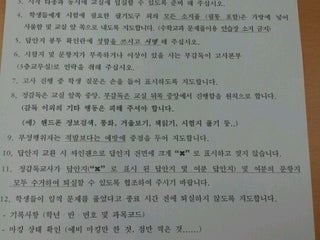 3. 시작 타종과 동시에 교실에 입실할 수 있도록 준비해 주십시오.
4. 학생들에게 시험에 필요한 필기도구 외의 모든 소지품 (필통 포함)은 가방에 넣어
사물함 및 교실 앞 쪽으로 내도록 지도합니다. (수학교과 문제풀이용 연습장 소지 금지)
5. 답안지 봉투 확인란에 성함을 쓰시고 서명해 주십시오.
6. 시험지 및 문항지가 부족하거나 이상이 있을 시는 부감독이 고사본부
(3층교무실)로 연락을 취해 주십시오.
7. 고사 진행 중 학생 질문은 손을 들어 표시하도록 지도합니다.
8. 정감독은 교실 앞 중앙, 부감독은 교실 뒤쪽 중앙에서 진행함을 원칙으로 합니다.
(감독 이외의 기타 행동은 피해 주셔야 합니다.
(예) 핸드폰 정보검색, 통화, 거울보기, 책읽기, 시험지 풀기 등..)
9. 부정행위자는 적발보다는 예방에 중점을 두어 지도합니다.
10. 답안지 교환 시 싸인펜으로 답안지 전면에 크게 "✖" 로 표시하고 찢지 않습니다.
11. 정감독교사가 답안지("✖" 로 표시 된 답안지 및 여분 답안지) 및 여분의 문항지
모두 수거하여 퇴실할 수 있도록 협조하여 주시기 바랍니다.
12. 학생들이 일찍 문제를 풀었다고 종료 시간 전에 퇴실하지 않도록 지도합니다.
- 기록사항 (학년 반 번호 및 과목코드)
- 마킹 상태 확인 (예비 마킹만 한 것, 점만 찍은 것......)